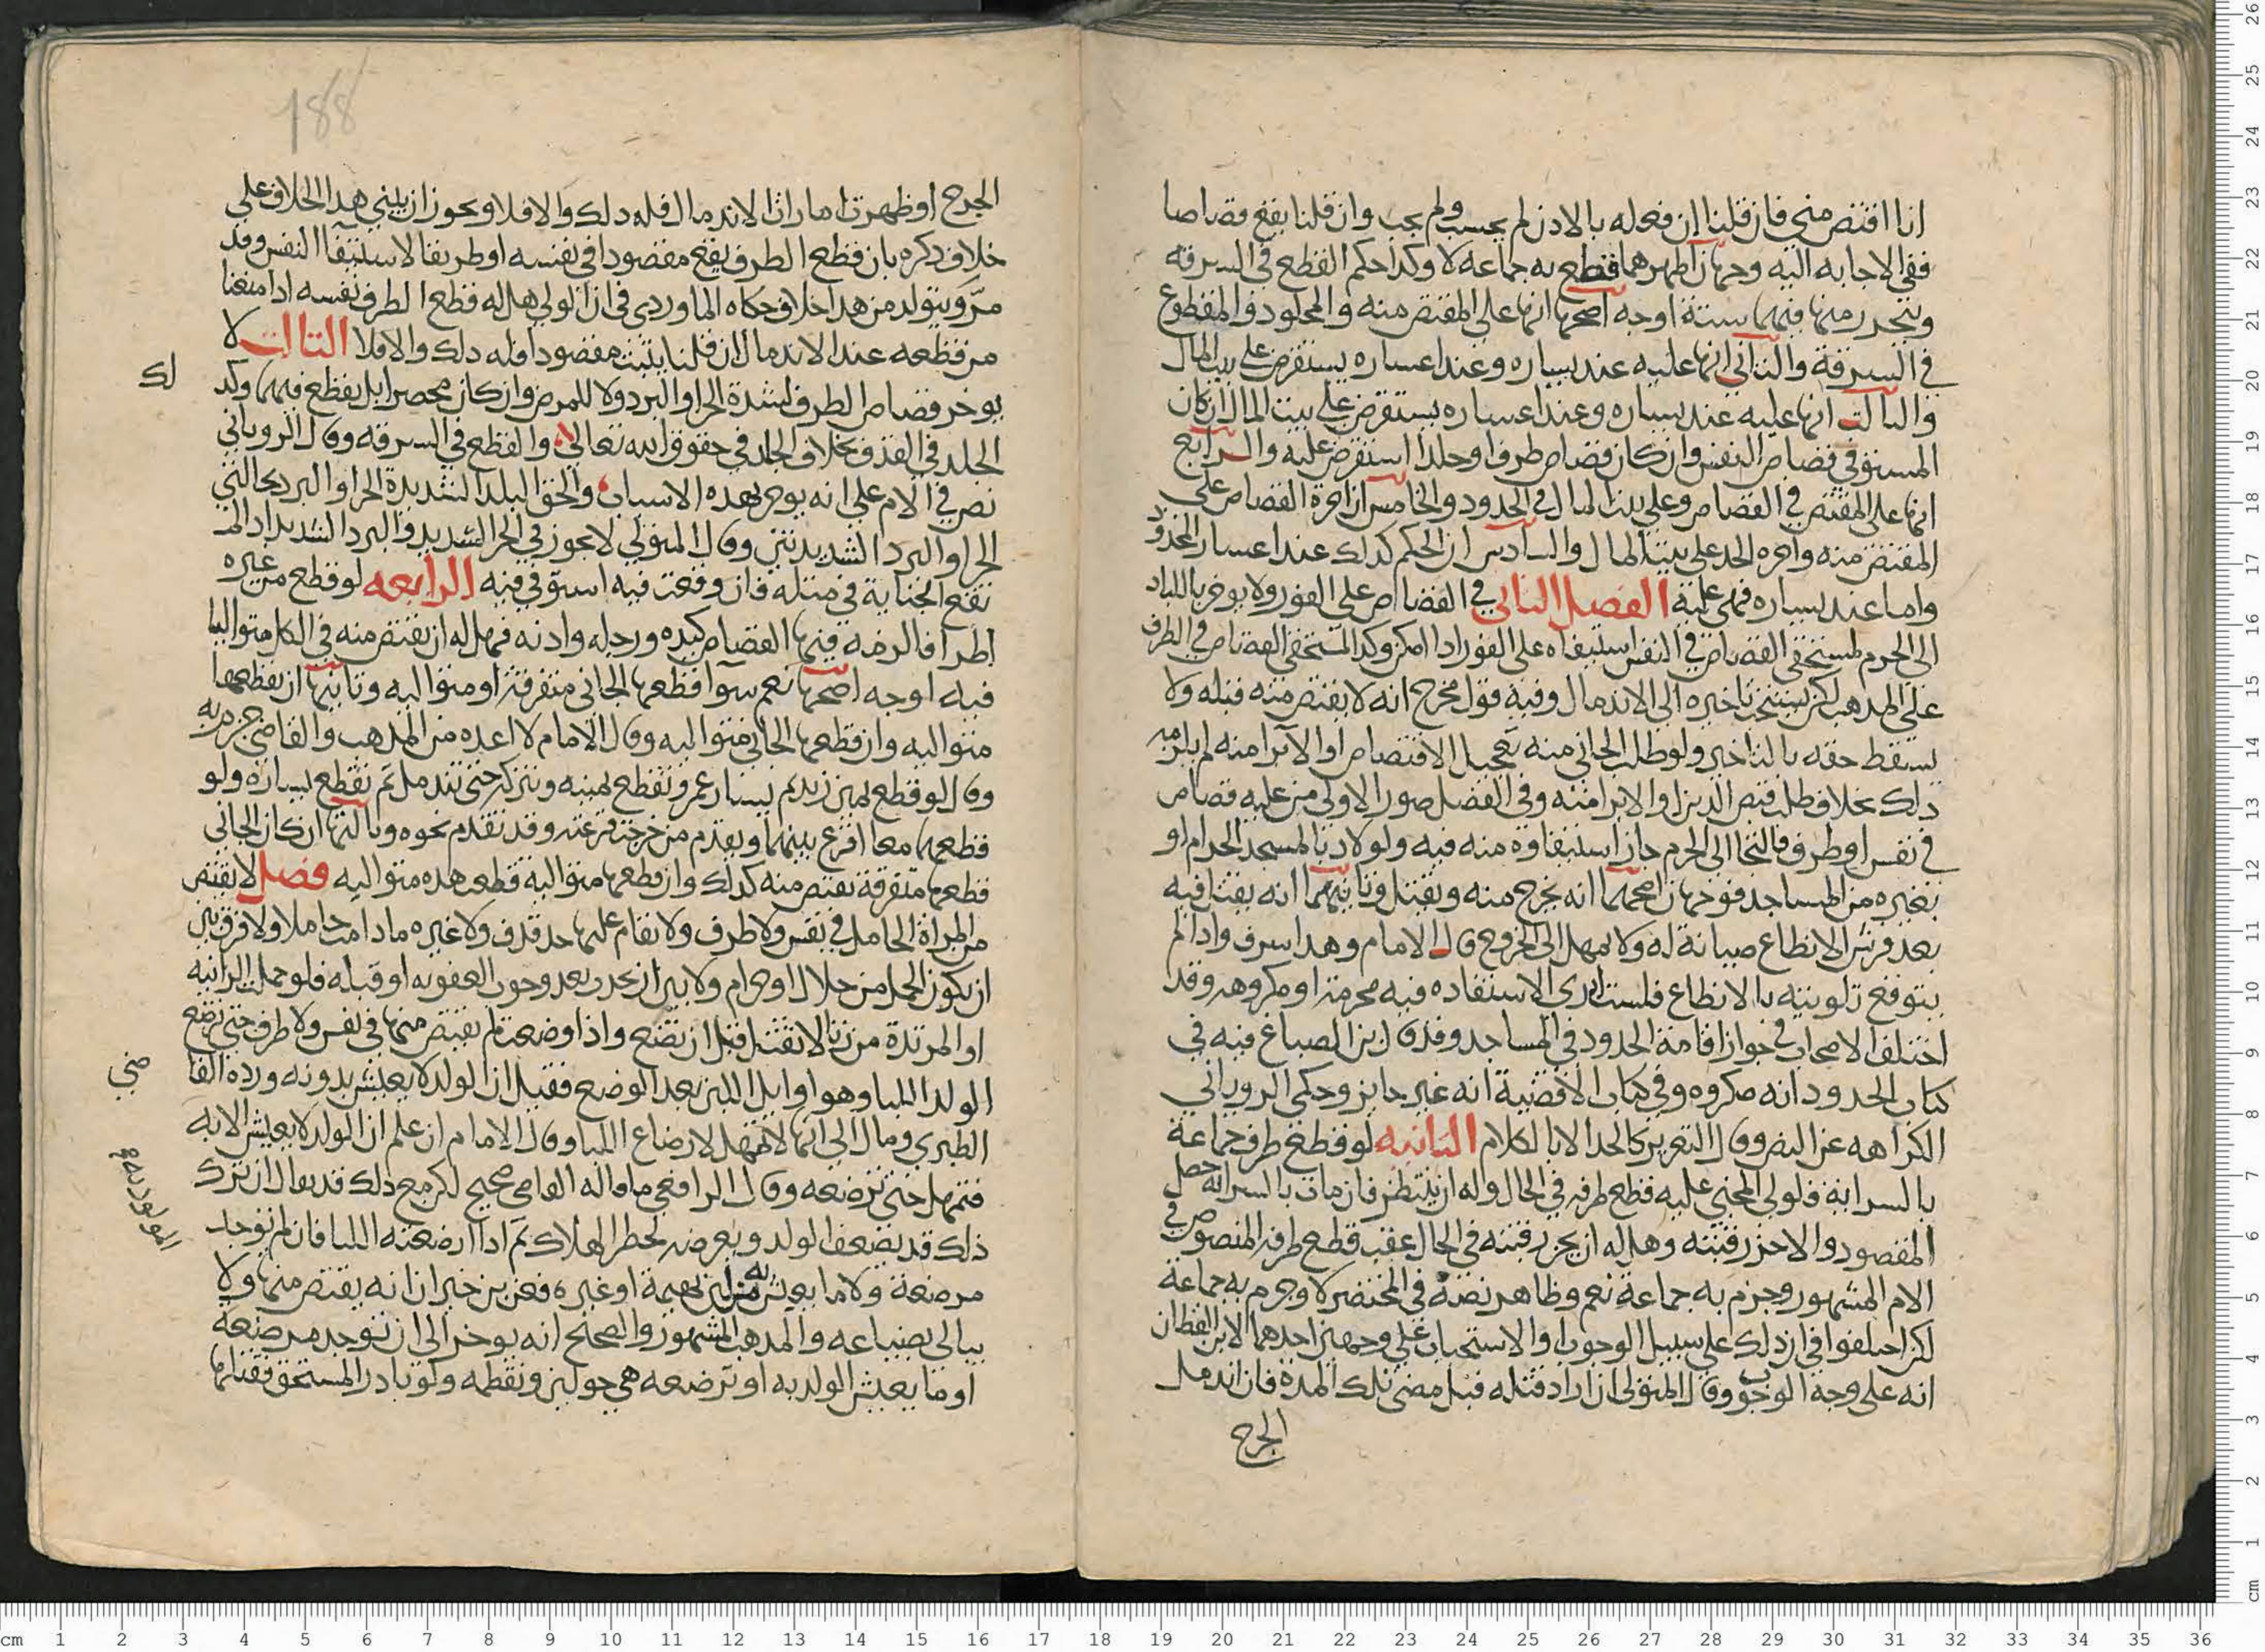 انا اقتص مني فان قلنا ان فعله بالاذن لم يحسب ولم يجب وان قلنا يقع قصاصا
ففي الاجابه اليه وجهان اظهرهما قطع به جماعه لا وكذا حكم القطع في السرقه
ويتحرر منها فيهما ستة اوجه اصحها انها على المقتص منه والمجلود والمقطوع
في السرقة والثاني انها عليه عند يساره وعند اعساره يستقرض على بيت المال
والثالث انها عليه عند يساره وعند اعساره يستقرض على بيت المال ان كان
المستوفى قصاص النفس وان كان قصاص طرف او جلدا استقرض عليه والرابع
انها على المقتص في القصاص وعلى بيت المال في الحدود والخامس ان اجرة القصاص على
المقتص منه واجره الحد على بيت المال والسادس ان الحكم كذلك عند اعسار المحدود
واما عند يساره فهي عليه الفصل الثاني في القصاص على الفور ولا يوخر باللياذ
الى الحرم لمستحقي القصاص في النفس استيفاه على الفور اذا امكن وكذا لمستحقي القصاص في الطرف
على المذهب لكن يستحب تاخيره الى الاندمال وفيه قول مخرج انه لا يقتص منه قبله ولا
يسقط حقه بالتاخير ولو طلب الجاني منه تعجيل الاقتصاص او الابرا منه لم يلزمه
ذلك بخلاف طلب قبض الدين او الابرا منه وفي الفصل صور الاولى من عليه قصاص
في نفس او طرف فالتجا الى الحرم جاز استيفاوه منه فيه ولو لاذ بالمسجد الحرام او
بغيره من المساجد فوجهان اصحهما انه يخرج منه ويقتل وثانيهما انه يقتل فيه
بعد فرش الانطاع صيانة له ولا يمهل الى الخروج قال الامام وهذا سرف واذا لم
يتوقع تلويثه بالانطاع فلست ادري الاستقاده فيه محرمة او مكروهه وقد
اختلف الاصحاب في جواز اقامة الحدود في المساجد وقد قال ابن الصباغ فيه في
كتاب الحدود انه مكروه وفي كتاب الاقضية انه غير جايز وحكى الروياني
الكراهه عن النص وقال التعزير كالحد الا بالكلام الثانيه لو قطع طرف جماعة
بالسراية فلولي المجني عليه قطع طرفه في الحال وله ان ينتظر فان مات بالسرايه حصل
المقصود والا حز رقبته وهل له ان يحز رقبته في الحال عقب قطع طرفه المنصوص في
الام المشهور وجزم به جماعة نعم وظاهر نصه في المختصر لا وجزم به جماعة
لكن اختلفوا في ان ذلك على سبيل الوجوب او الاستحباب على وجهين احدهما لابن القطان
انه على وجه الوجوب وقال المتولي ان اراد قتله قبل مضي تلك المدة فان اندمل
الجرح
188
الجرح او ظهرت امارات الاندمال فله ذلك والا فلا ويجوز ان يبنى هذا الخلاف على
خلاف ذكره بان قطع الطرف يقع مقصودا في نفسه او طريقا لاستيفا النفس وقد
مر ويتولد من هذا خلاف حكاه الماوردي في ان الولي هل له قطع الطرف نفسه اذا منعنا
من قطعه عند الاندمال ان قلنا يثبت مقصودا فله ذلك والا فلا الثالث لا
يوخر قصاص الطرف لشدة الحر او البرد ولا للمرض وان كان مخصرا بل يقطع فيهما وكذ
لك
الجلد في القذف بخلاف الجلد في حقوق الله تعالى والقطع في السرقه وقال الروياني
نص في الام على انه يوخر بهذه الاسباب والحق البلد الشديدة الحر او البرد بحالتي
الحر او البرد الشديدتين وقال المتولي لا يجوز في الحر الشديد والبرد الشديد اذا لم
تقع الجناية في مثله فان وقعت فيه استوفي فيه الرابعه لو قطع من غيره
اطرافا لزمه فيها القصاص كيده ورجله واذنه فهل له ان يقتص منه في الكل متواليا
فيه اوجه اصحها نعم سوا قطعها الجاني متفرقة او متواليه وثانيها ان يقطعها
متواليه وان قطعها الجاني متواليه وقال الامام لا اعده من المذهب والقاضي جزم به
وقال لو قطع يمين زيد ثم يسار عمرو تقطع يمينه ويترك حتى تندمل ثم تقطع يساره ولو
قطعهما معا اقرع بينهما ويقدم من خرجت قرعته وقد تقدم نحوه وثالثها ان كان الجاني
قطعها متفرقة يقتص منه كذلك وان قطعها متوالية قطعت هذه متواليه فصل لا يقتص
من المراة الحامل في نفس ولا طرف ولا يقام عليها حد قذف ولا غيره ما دامت حاملا ولا فرق بين
ان يكون الحمل من حلال او حرام ولا بين ان يحدث بعد وجوب العقوبه او قبله فلو حملت الزانيه
او المرتدة من زنا لا تقتل قبل ان تضع واذا وضعت لم يقتص منها في نفس ولا طرف حتى ترضع
الولد اللبا وهو اوايل اللبن بعد الوضع فقيل ان الولد لا يعيش بدونه ورده القا
ضي
الطبري ومال الى انها لا تمهل لارضاع اللبا وقال الامام ان علم ان الولد لا يعيش الا به
فتمهل حتى ترضعه وقال الرافعي ما قاله القاضي صحيح لكن مع ذلك قد يقال ان ترك
ذلك قد يضعف الولد ويعرضه لخطر الهلاك ثم اذا ارضعته اللبا فان لم توجد
مرضعة ولا ما يعيش به من لبن بهيمة او غيره فعن بن خيران انه يقتص منها ولا
يبالى بضياعه والمذهب المشهور والصحيح انه يوخر الى ان توجد مرضعة
او ما يعيش الولد به او ترضعه هي حولين وتفطمه ولو بادر المستحق فقتلها